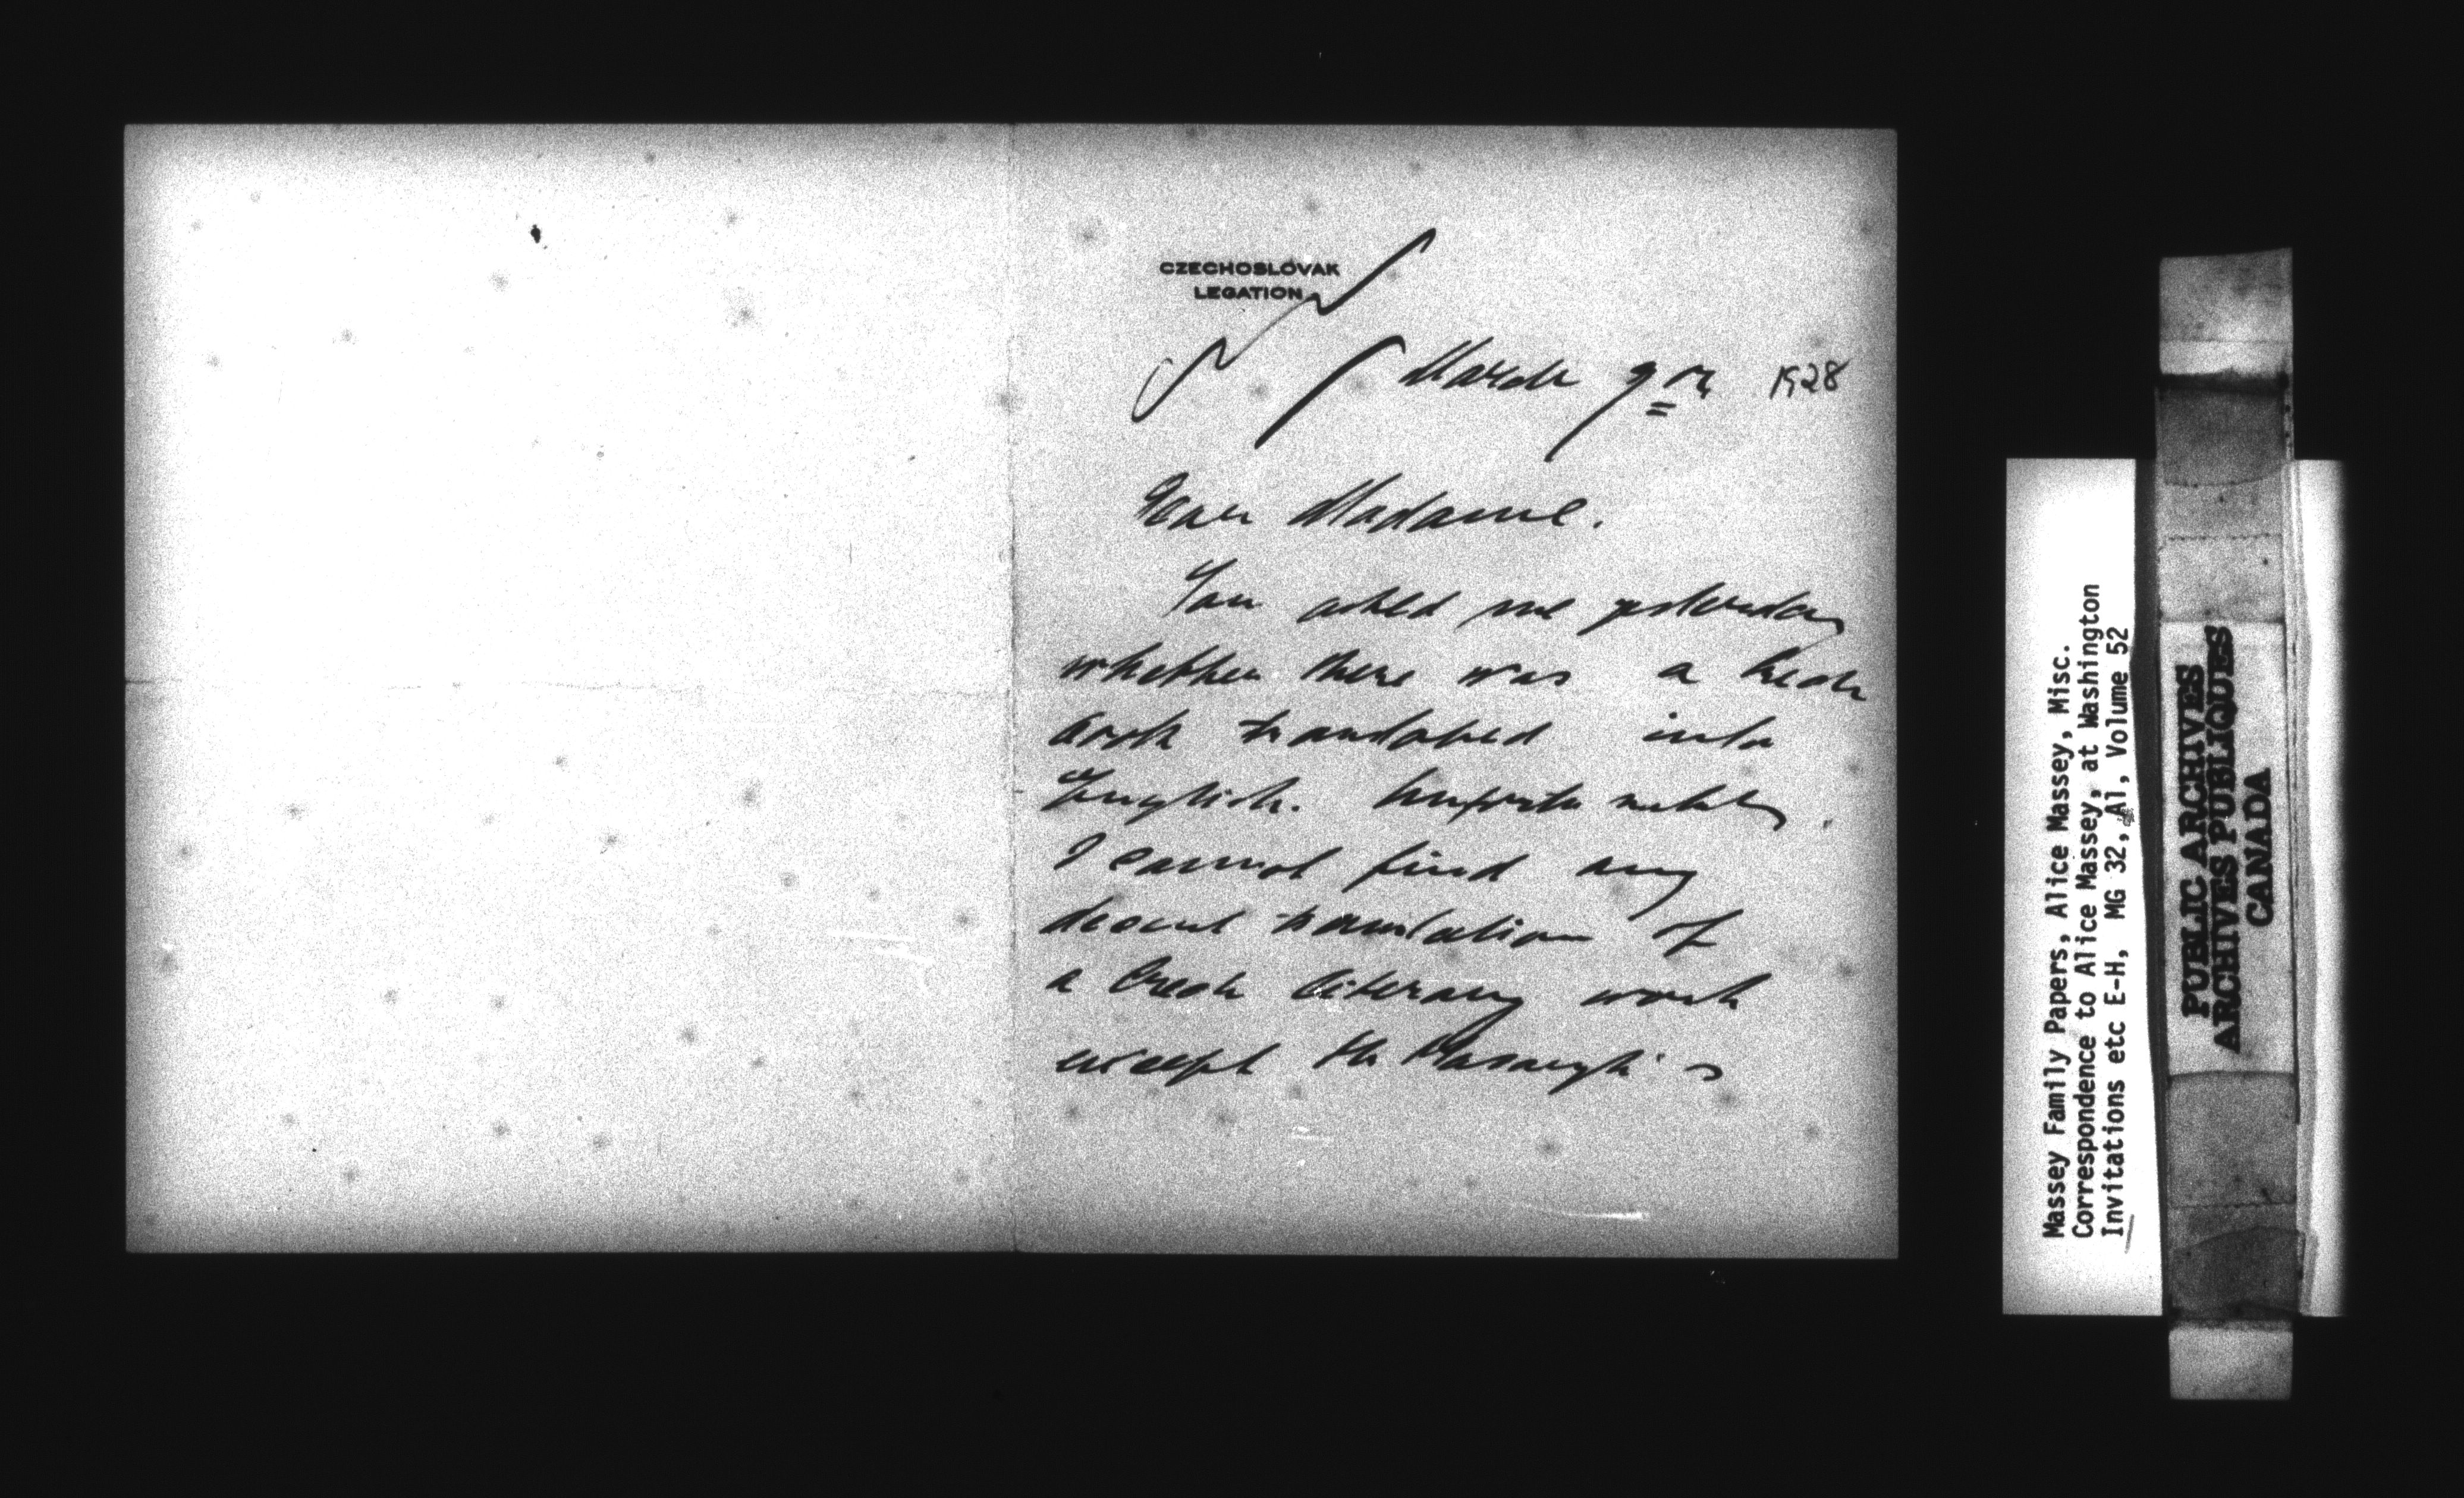 CZECHOSLOVAK
LEGATION
March 9th 1928
Dear Madame.
You asked me yesterday
whether there was a Czech
work translated into
English. Unfortunately,
I cannot find any
decent translation of
a Czech literary work
except the Masaryk's
Massey Family Papers, Alice Massey, Misc.
Correspondence to Alice Massey, at Washington
Invitations etc E-H, MG 32, A1, Volume 52
PUBLIC ARCHIVES
ARCHIVES PUBLIQUES
CANADA